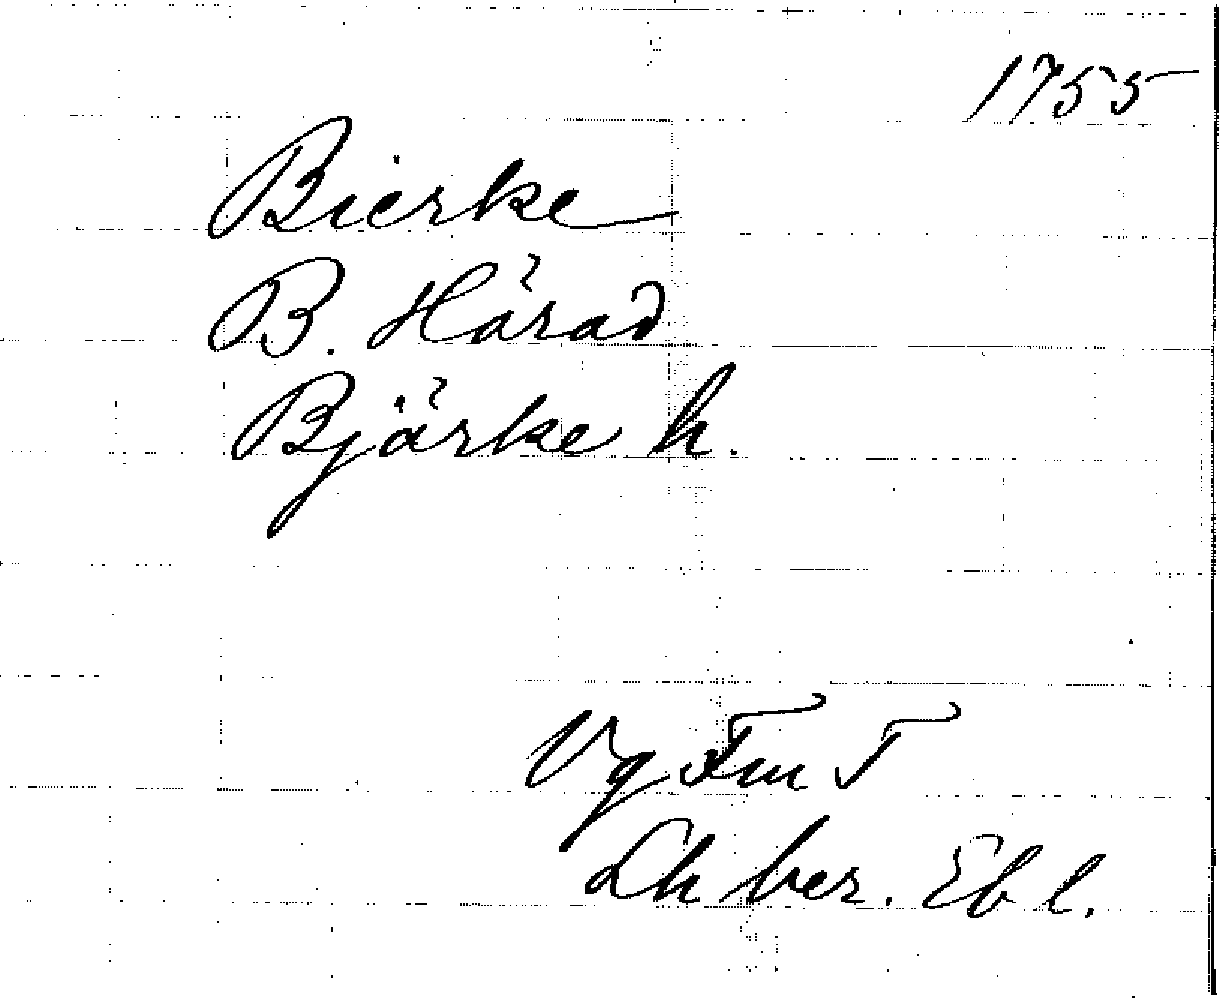 1755
Bierke
B. Härad
Bjärke h.
Vg Fm T
Lh ber. Ebl.